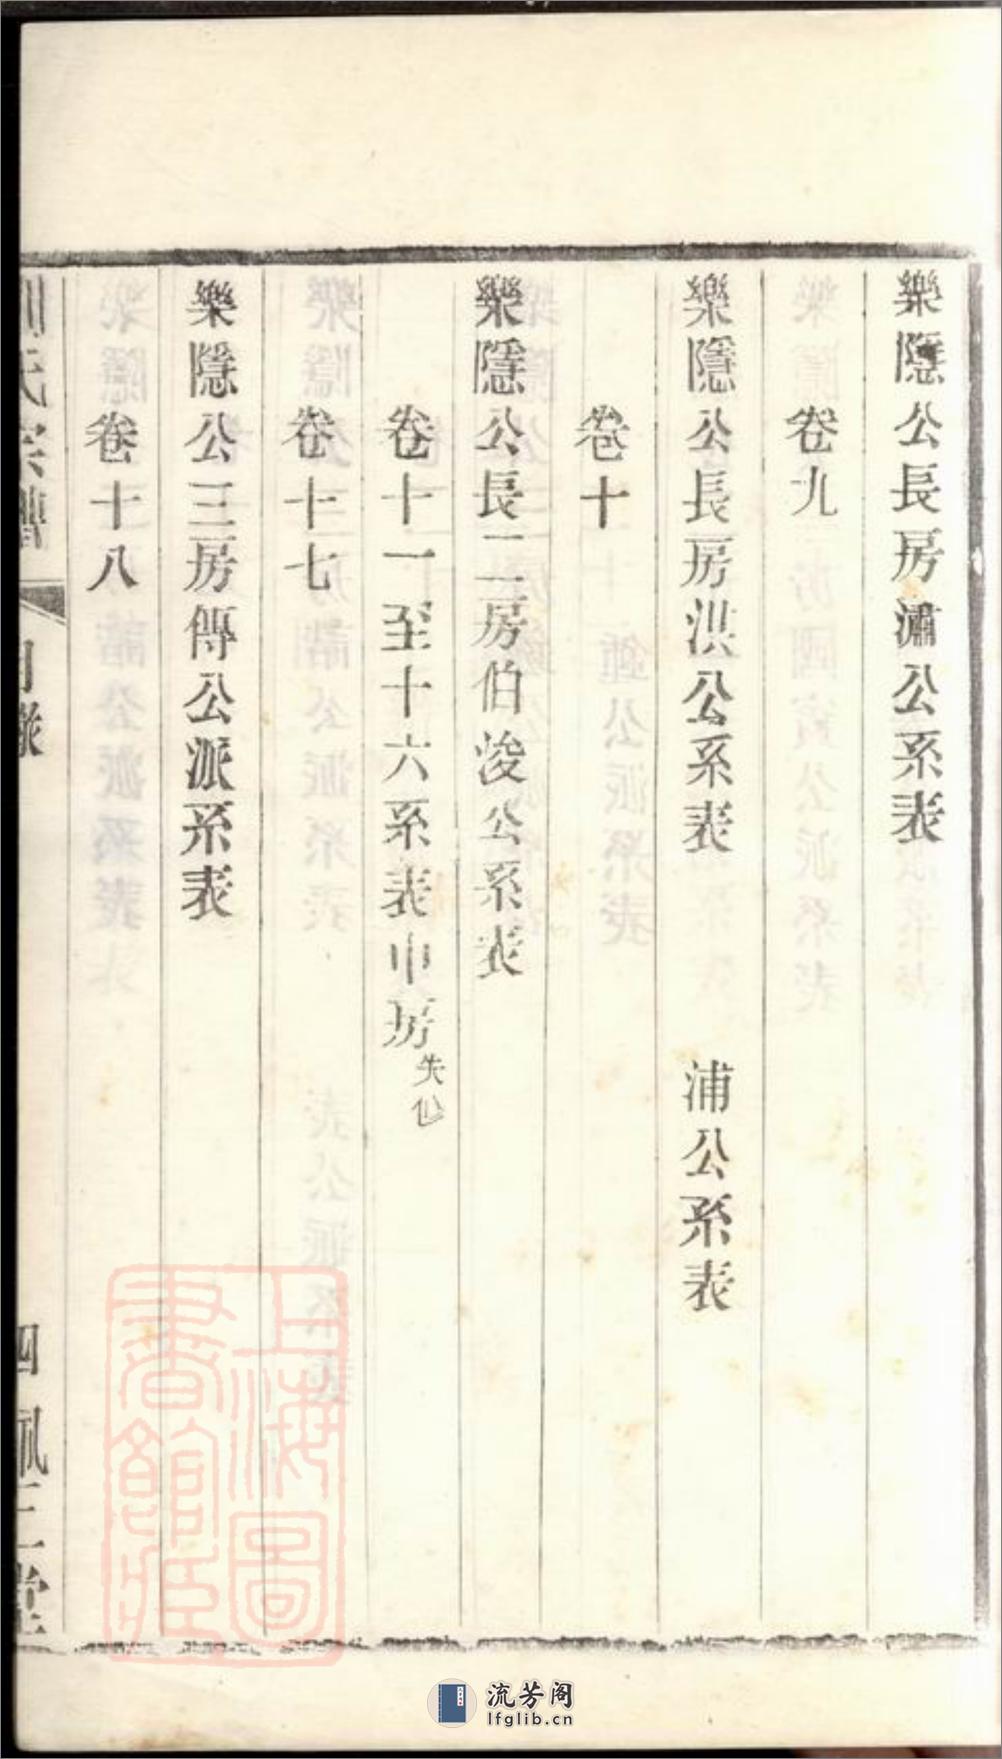 樂隱公長房潚公系表
卷九
樂隱公長房洪公系表 浦公系表
卷十
樂隱公長二房伯浚公系表
卷十一至十六系表中房失
卷十七
樂隱公三房傳公派系表
卷十八
氏宗譜 目錄 堂
上海圖書館藏
流芳阁
lfglib.cn